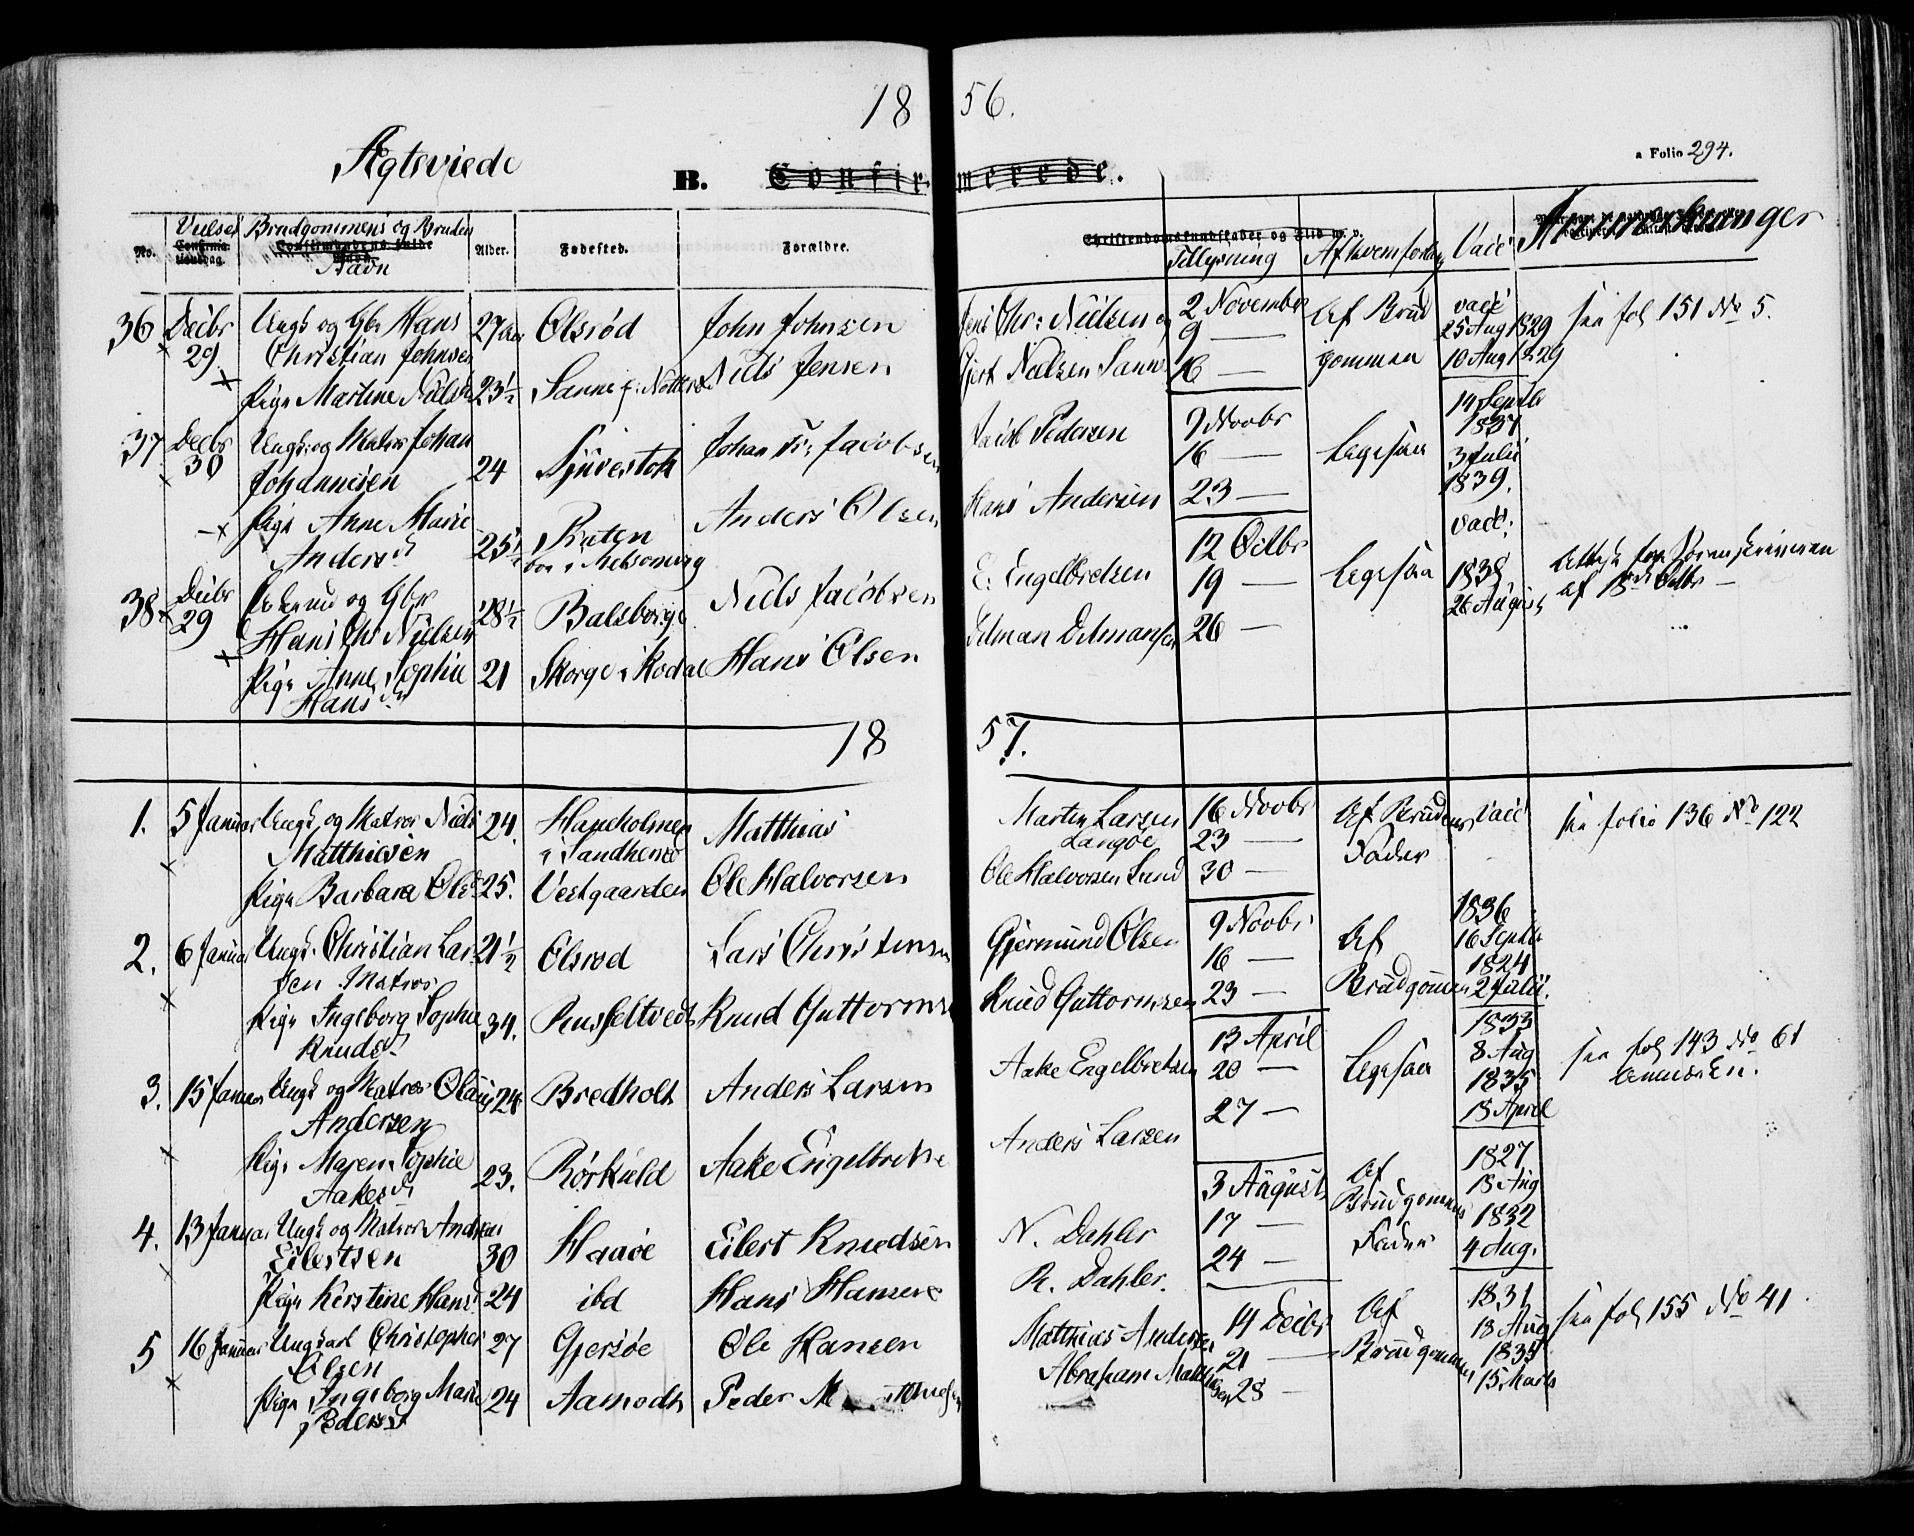 18 56.
Ægteviede
a Folio 294.
B. Confirmerede.
Vielses Brudgommens og Bruden
No. Confirmationsdag. Confirmandens fulde Navn. Alder. Fødested. Forældre. Christendomskundskaber og Flid m. v. Anmærkninger
Navn Tillysning Af hvem forlangt Vacc
36 Decbr Ungk og Gbr Hans 27 aar Olsrød John Johnsen Jens Chr: Nielsen og 2 November Af Brud vacc see fol 151 No 5.
29 Christian Johnsen 9 — 25 Aug 1829
Pige Martine Niels 23½ Sanne p: Nøtterø Niels Jensen Gjert Nielsen Sanne 16 — gommen 10 Aug 1829
37 Decbr Ungk: og Matros Johan Johan Fr: Jacobsen Jacob Pedersen 9 Novbr 14 Septbr 1837
30 Johannesen 24 16 — Begesaa 3 Julii
Pige Anne Marie Anders Olsen Hans Andersen 23 — 1839.
Anders d 25½ Braten
38 Decbr og Gbr 28½ Balsberge Niels Jacobsen E. Engelbretsen 12 Octbr Begesaa vacc:
29 Hans Chr Nielsen 19 — 1838 af 18de Octbr
Pige Anne Sophie 21 Skorge i Kodal Hans Olsen 26 — 26 August
Hans d
18 57.
1. 5 Januar Ungk og Matros Niels 24. Haneholmen Matthias Martin Larsen 16 Novbr Af Brudens vacc see folio 136 No 122
Matthiesen i Sandhered Langøe 23 — Fader
Pige Barbara Ols d 25. Vestgaarden Ole Halvorsen Ole Halvorsen Lund 30 —
2. 6 Januar Ungk. Christian Lar- 21½ Olsrød Lars Christensen Gjermund Olsen 9 Novbr Af 1836
sen Matros 16 — 16 Septbr
Pige Ingeborg Sophie 34. Knud Guttormsen Knud Guttormsen 23 — Brudgomen 1824
Knuds d 2 Julii.
3. 15 Januar Ungk og Matros Olaus 24 Bredholt Anders Larsen Aake Engelbretsen 13 April Begesaa 1833 see fol 143 No 61
Andersen 20 — 8 Aug
Pige Maren Sophie 23. Rørkuld Aake Engelbretsen Anders Larsen 27 — 1835
Aakes d 18 April
4. 13 Januar Ungk og Matros Andreas Haaøe Eilert Knudsen N. Dahler 3 August Af 1827
Eilertsen 30 17 — Brudgomens 18 Aug
Pige Kirstine Hans d 24 ibd Hans Hansen R. Dahler. 24 — Fader 1832
4 Aug.
5 16 Januar Ungkarl Christopher 27 Gjersøe Ole Hansen Matthias Andersen 14 Decbr Af 1831 see fol 155 No 41
Olsen 21 — Brudgommen 18 Aug
Pige Ingeborg Marie 24 Aamodt Peder Abraham Matthiesen 28 — 1834
Peders d 15 Marts